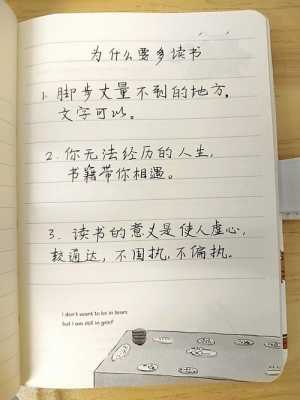 为什么要多读书
1. 脚步丈量不到的地方,
文字可以。
2. 你无法经历的人生,
书籍带你相遇。
3. 读书的意义是使人虚心,
较通达,不固执,不偏执。
I don't want to be in tears
but I am still in grief